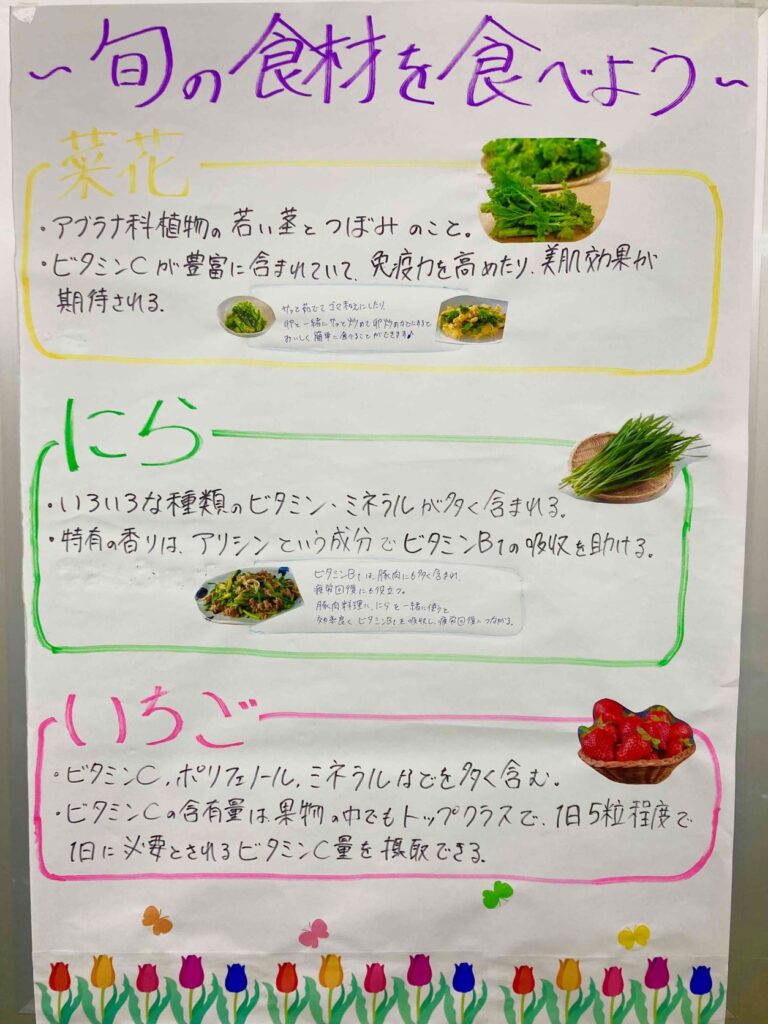 ~旬の食材を食べよう~
菜花
・アブラナ科植物の若い茎とつぼみのこと。
・ビタミンCが豊富に含まれていて、免疫力を高めたり、美肌効果が
期待される。
サッと茹でてゴマ和えにしたり、
卵と一緒にサッと炒めて卵炒めなどにすると
おいしく簡単に食べることができます♪
にら
・いろいろな種類のビタミン、ミネラルが多く含まれる。
・特有の香りは、アリシンという成分でビタミンB1の吸収を助ける。
ビタミンB1は、豚肉にも多く含まれ、
疲労回復にも役立つ。
豚肉料理に、にらを一緒に使うと
効率良くビタミンB1を吸収し、疲労回復につながる。
いちご
・ビタミンC、ポリフェノール、ミネラルなどを多く含む。
・ビタミンCの含有量は果物の中でもトップクラスで、1日5粒程度で
1日に必要とされるビタミンC量を摂取できる。